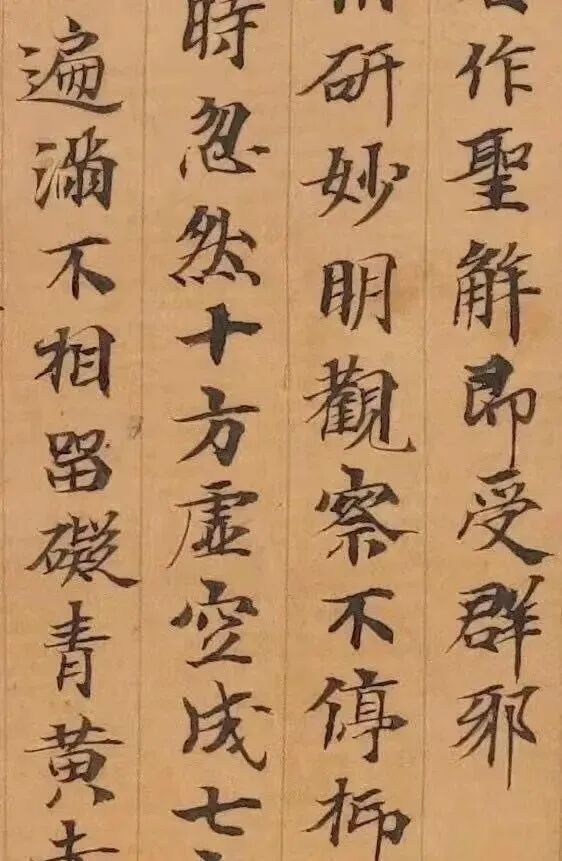 作聖解即受群邪
研妙明觀察不停抑
時忽然十方虛空成七
遍滿不相留礙青黃